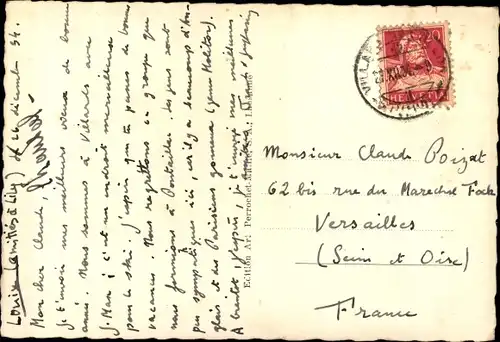 le 26 décembre 34.
Mon cher Claude,
je t'envoie mes meilleurs vœux de bonne
année. Nous sommes à Villards avec
J. Mar; c'est un endroit merveilleux
pour le ski. J'espère que tu passes de bonnes
vacances. Nous regrettons ce groupe que
nous formions à Pontaillac. Les gens sont
peu sympathiques ici, car il y a beaucoup d'An-
glais et des Parisiens gommeux (genre Molitor).
A bientôt, j'espère, je t'envoie mes meilleurs
Edition Art. Perrochet
HELVETIA
20
VILLARS
Monsieur Claude Poizat
62 bis rue du Marechal Foch
Versailles
(Seine et Oise)
France